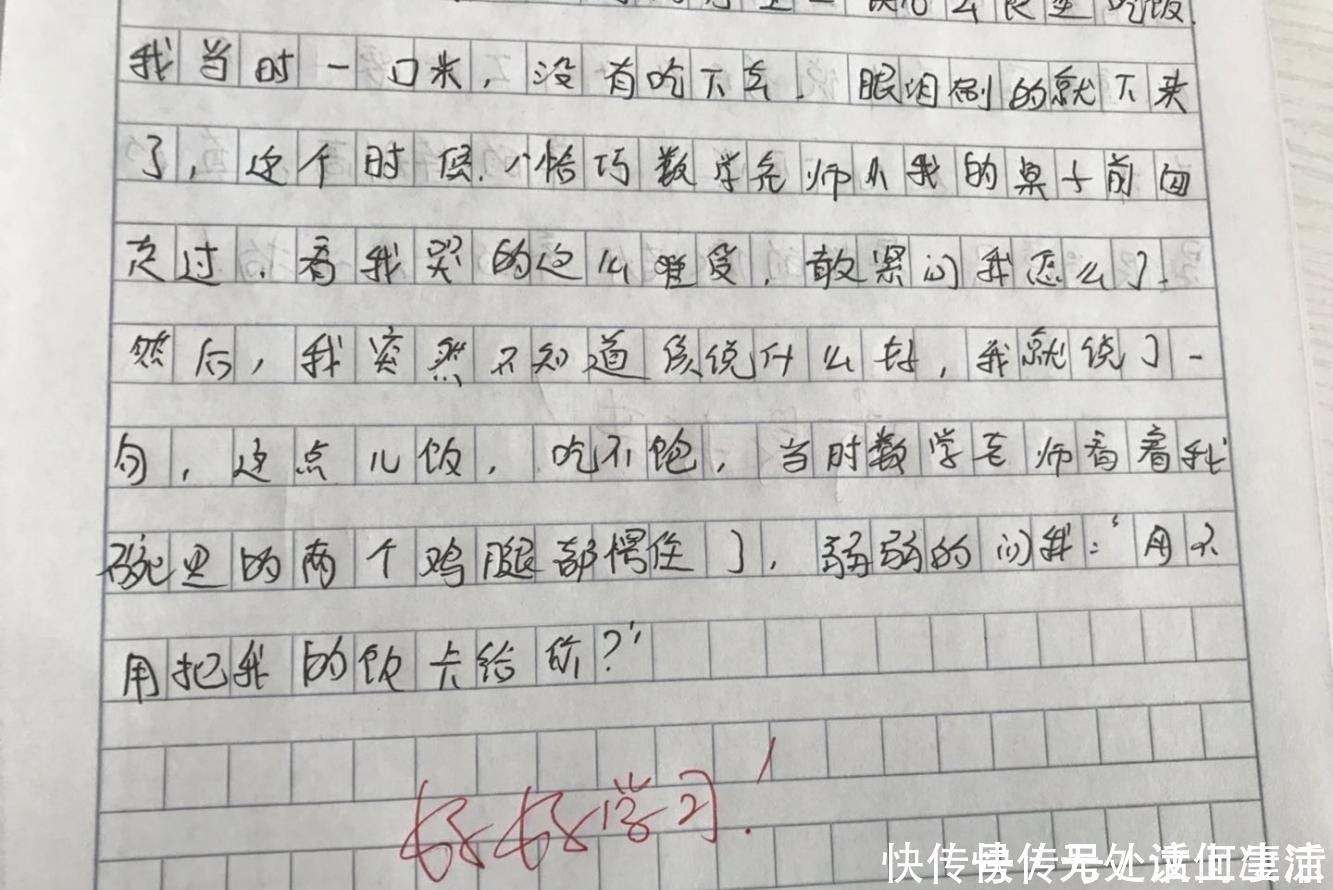 食堂吃饭
我当时一口米，没有吃下去，眼泪刷的就下来
了，这个时候，恰巧数学老师从我的桌子前面
走过，看我哭的这么难受，敢紧问我怎么了，
然后，我突然不知道该说什么好，我就说了一
句，这点儿饭，吃不饱，当时数学老师看着我
碗里的两个鸡腿都愣住了，弱弱的问我：“用不
用把我的饭卡给你？”
好好学习！
快传号